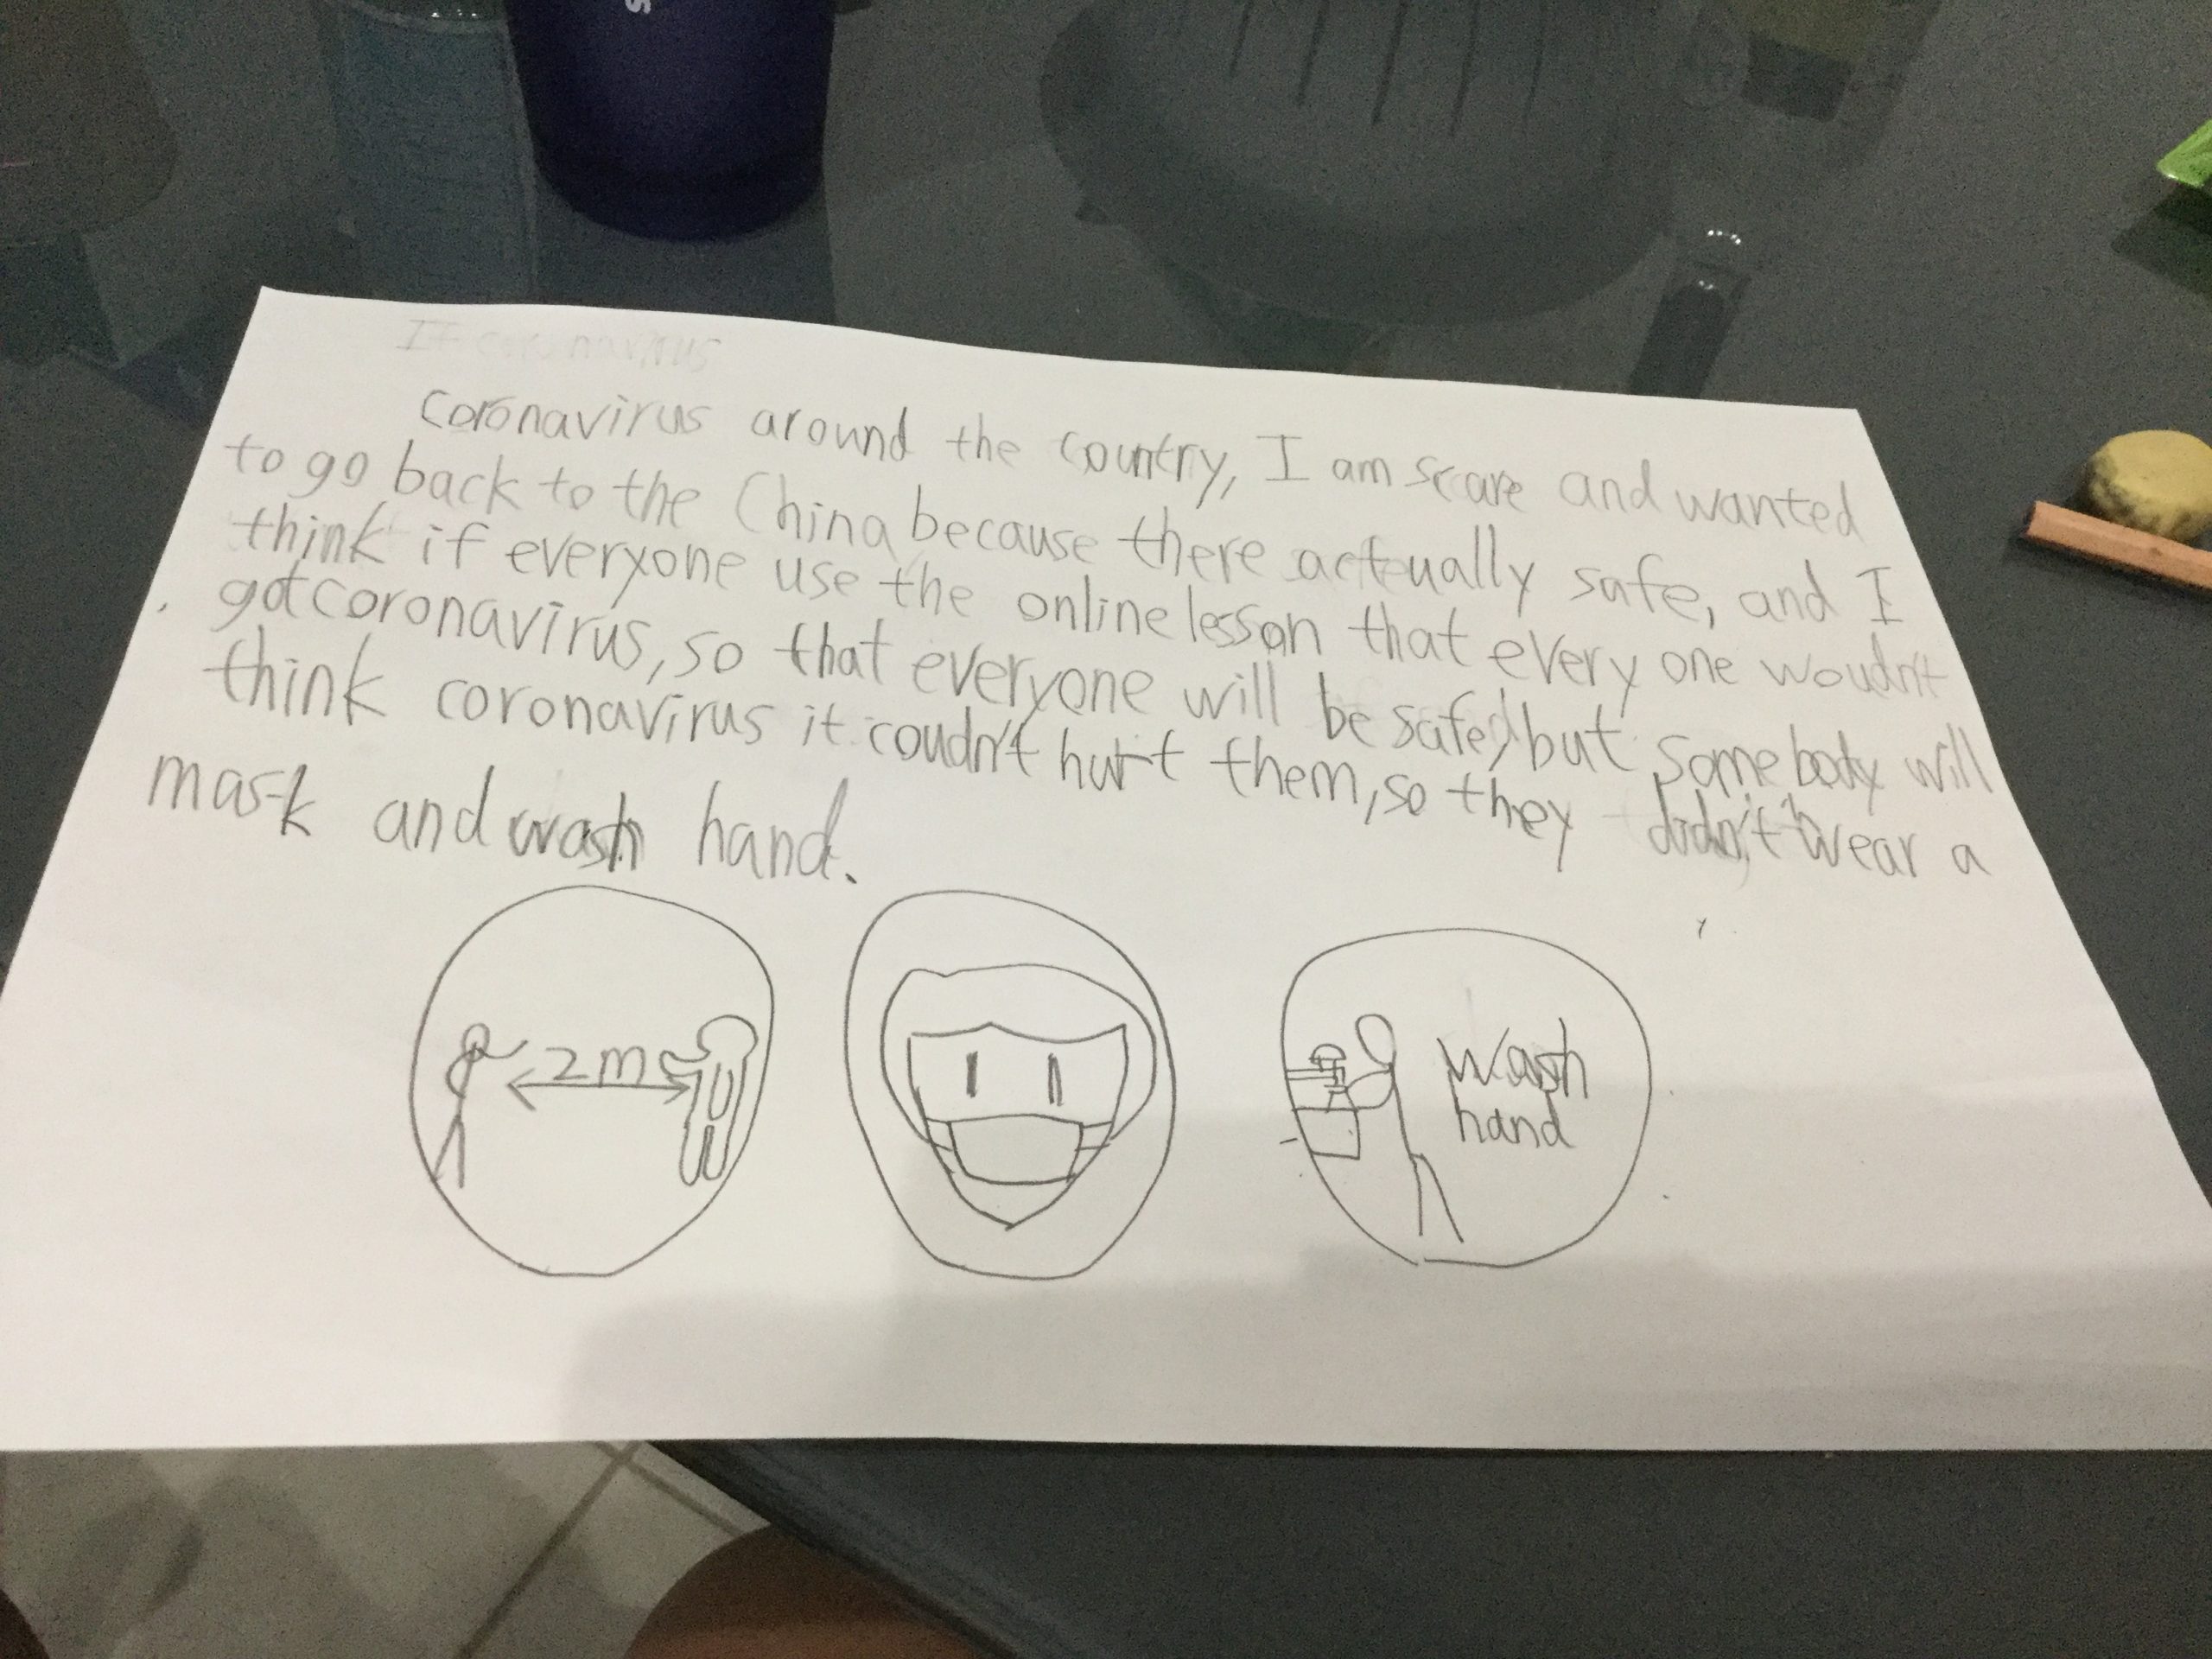 If coronavirus
coronavirus around the country, I am scare and wanted
to go back to the China because there acteually safe, and I
think if everyone use the online lesson that every one woudn't
got coronavirus, so that everyone will be safe, but somebody will
think coronavirus it coudn't hurt them, so they didn't wear a
mask and wash hand.
2m
wash
hand